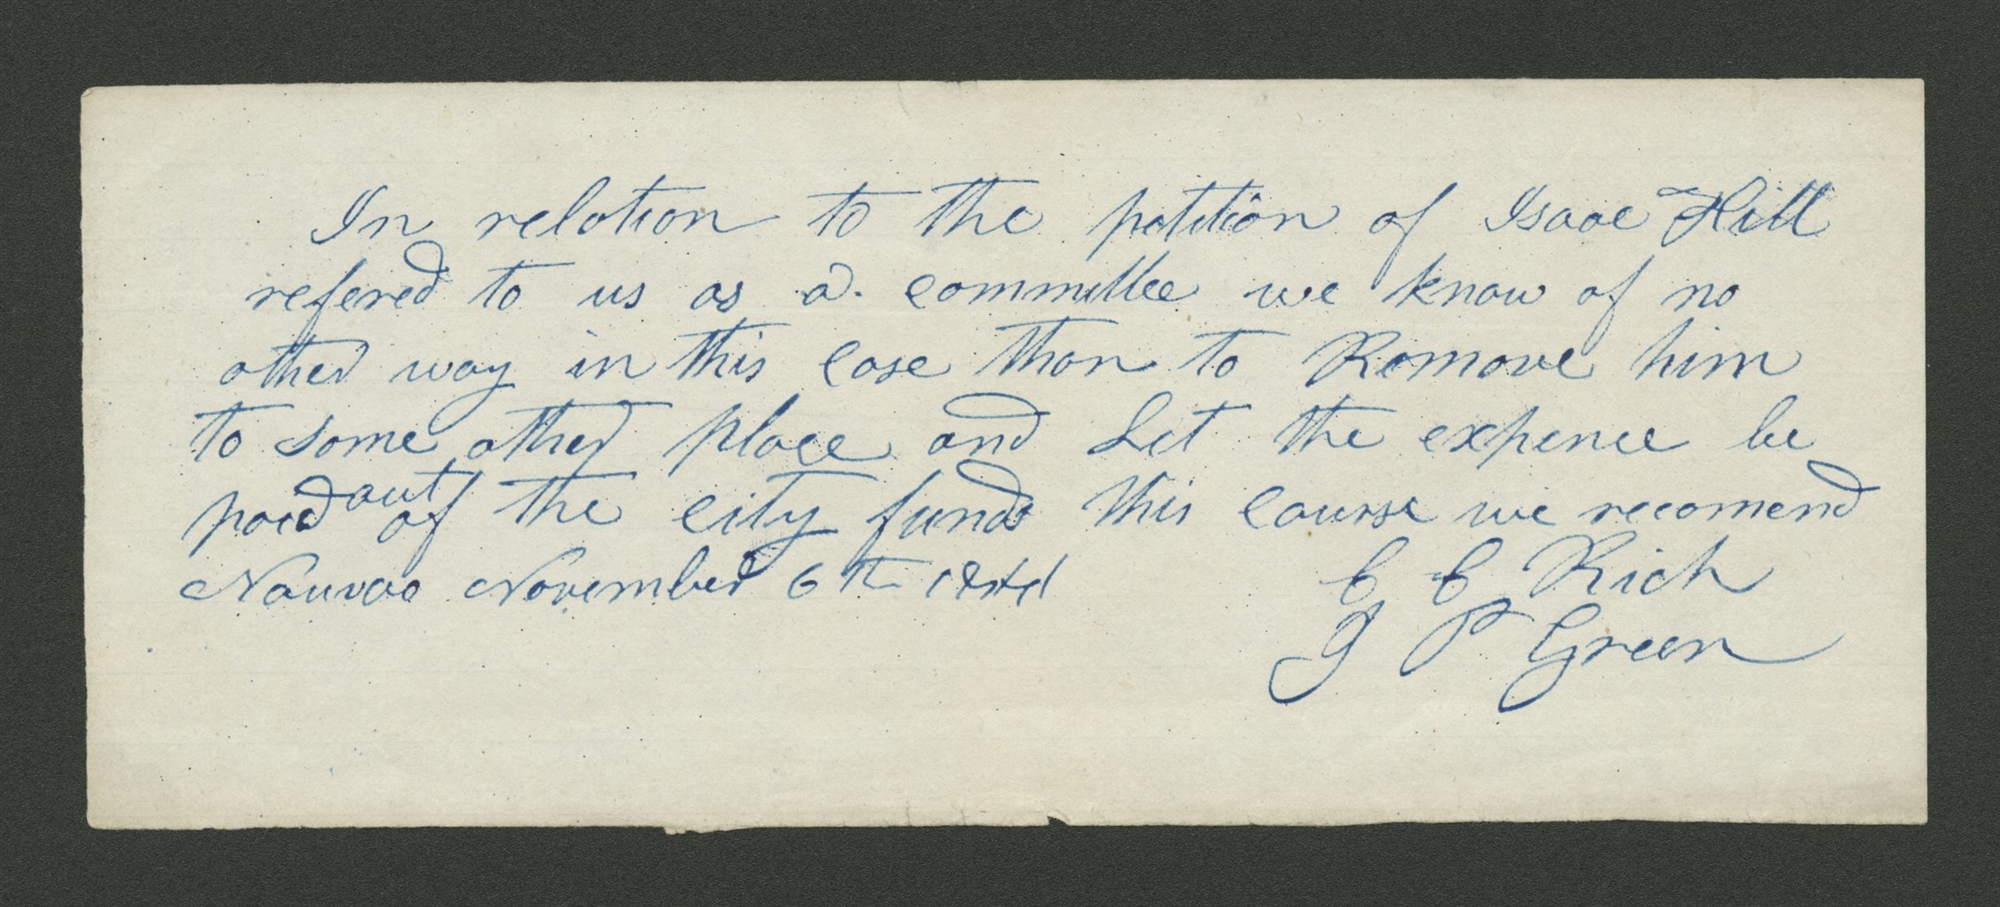 In relation to the petition of Isaac Hill
refered to us as a. committee we know of no
other way in this case than to Remove him
to some other place and Let the expence be
paid out of the city funds this course we recomend
Nauvoo November 6th 1841
C C Rich
J P Green